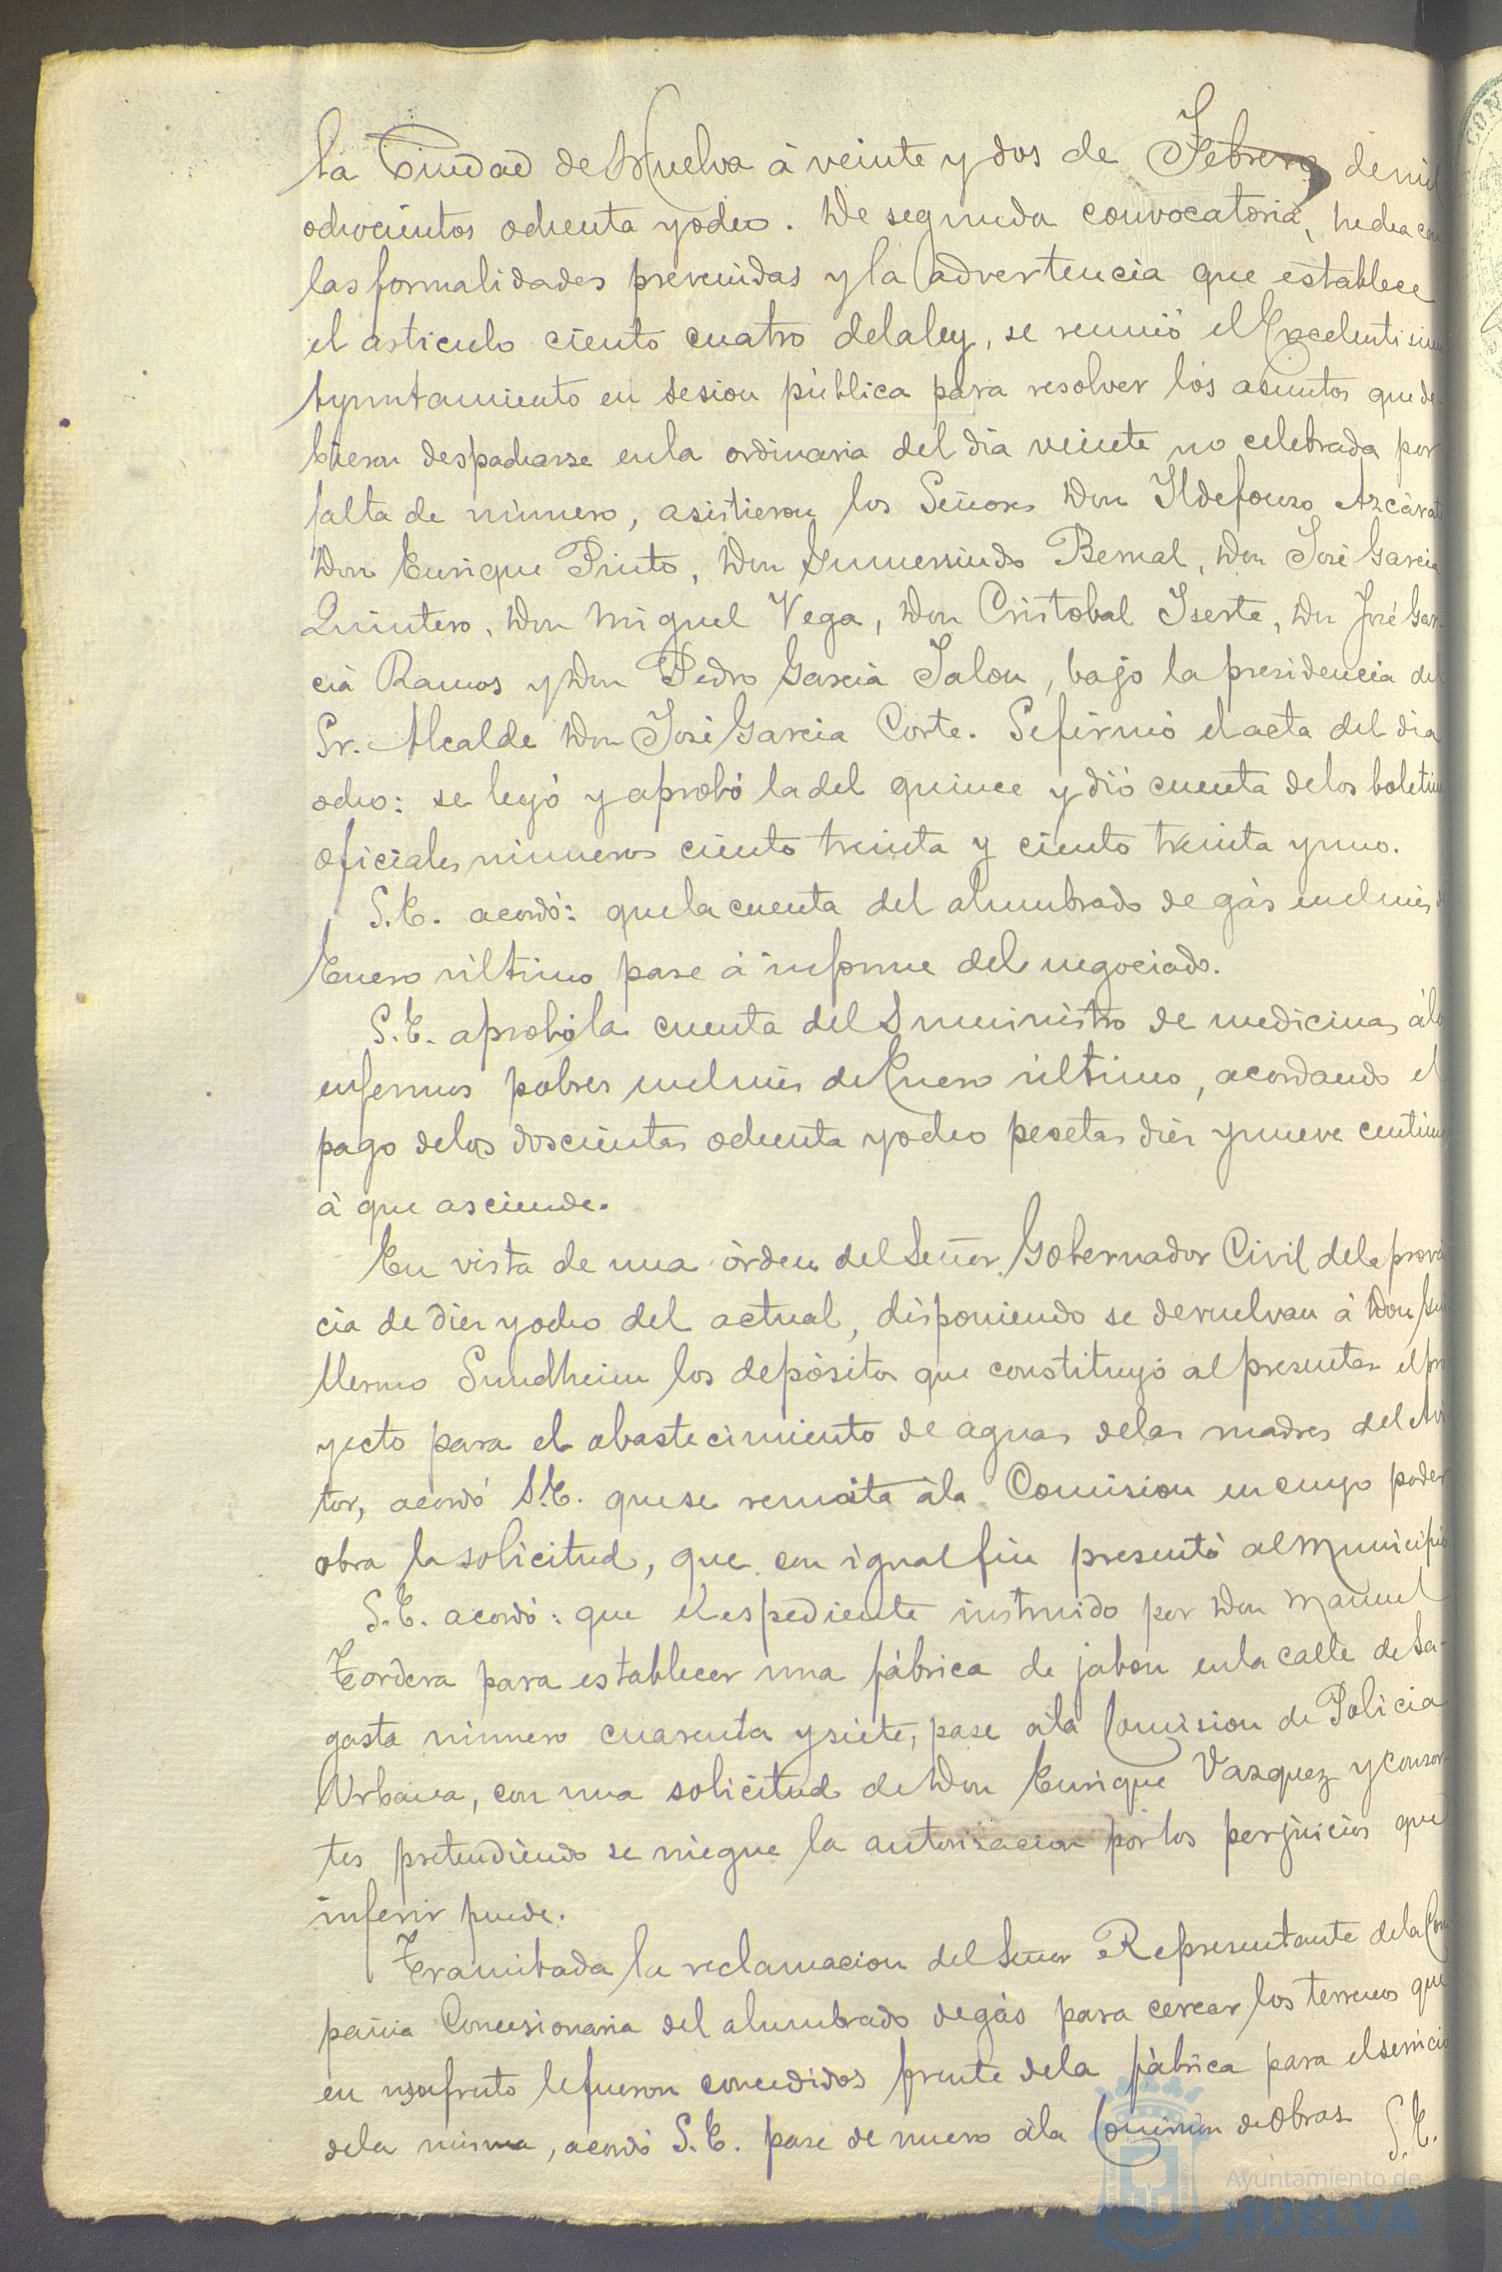 la Ciudad de Huelva à veinte y dos de Febrero de mil
ochocientos ochenta y ocho. De segunda convocatoria, hecha con
las formalidades prevenidas y la advertencia que establece
el articulo ciento cuatro de la ley, se reunió el Excelentisimo
Ayuntamiento en sesion pública para resolver los asuntos que de-
bieron despacharse en la ordinaria del dia veinte no celebrada por
falta de número, asistieron los Señores Don Ildefonso Azcárate
Don Enrique Pinto, Don Gumersindo Bernal, Don José Garcia
Quintero, Don Miguel Vega, Don Cristobal Iserte, Don José Gar-
cia Ramos y Don Pedro Garcia Jalon, bajo la presidencia del
Sr. Alcalde Don José Garcia Corte. Se firmó el acta del dia
ocho: se leyó y aprobó la del quince y dió cuenta de los boletines
oficiales números ciento treinta y ciento treinta y uno.
S.E. acordó: que la cuenta del alumbrado de gás en el mes de
Enero último pase á informe del negociado.
S.E. aprobó la cuenta del Suministro de medicinas á los
enfermos pobres en el mes de Enero último, acordando el
pago de los doscientas ochenta y ocho pesetas diez y nueve centimos
à que asciende.
En vista de una órden del Señor Gobernador Civil de la provin
cia de diez y ocho del actual, disponiendo se devuelvan á Don Gui
llermo Sundheim los depósitos que constituyó al presentar el pro
yecto para el abastecimiento de aguas de las madres del Avi
tor, acordó S.E. que se remita á la Comision en cuyo poder
obra la solicitud, que con igual fin presentó al Municipio
S.E. acordó: que el espediente instruido por Don Manuel
Tordera para establecer una fábrica de jabon en la calle de Sa-
gasta número cuarenta y siete, pase á la Comision de Policia
Urbana, con una solicitud de Don Enrique Vazquez y consor-
tes pretendiendo se niegue la autorisacion por los perjuicios que
inferir puede.
Tramitada la reclamacion del Señor Representante de la Com
pañia Concesionaria del alumbrado de gás para cercar los terrenos que
en usufruto le fueron concedidos frente de la fàbrica para el servicio
de la misma, acordó S.E. pase de nuevo á la Comision de Obras S.E.
Ayuntamiento de
HUELVA